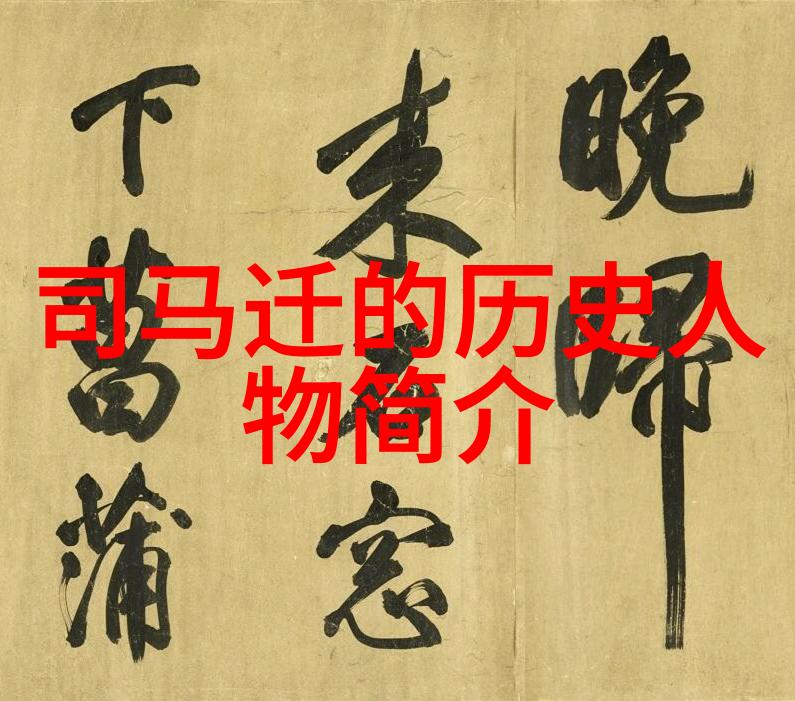 司马迁的历史人
物简介
晚歸
来石窓
下菖蒲